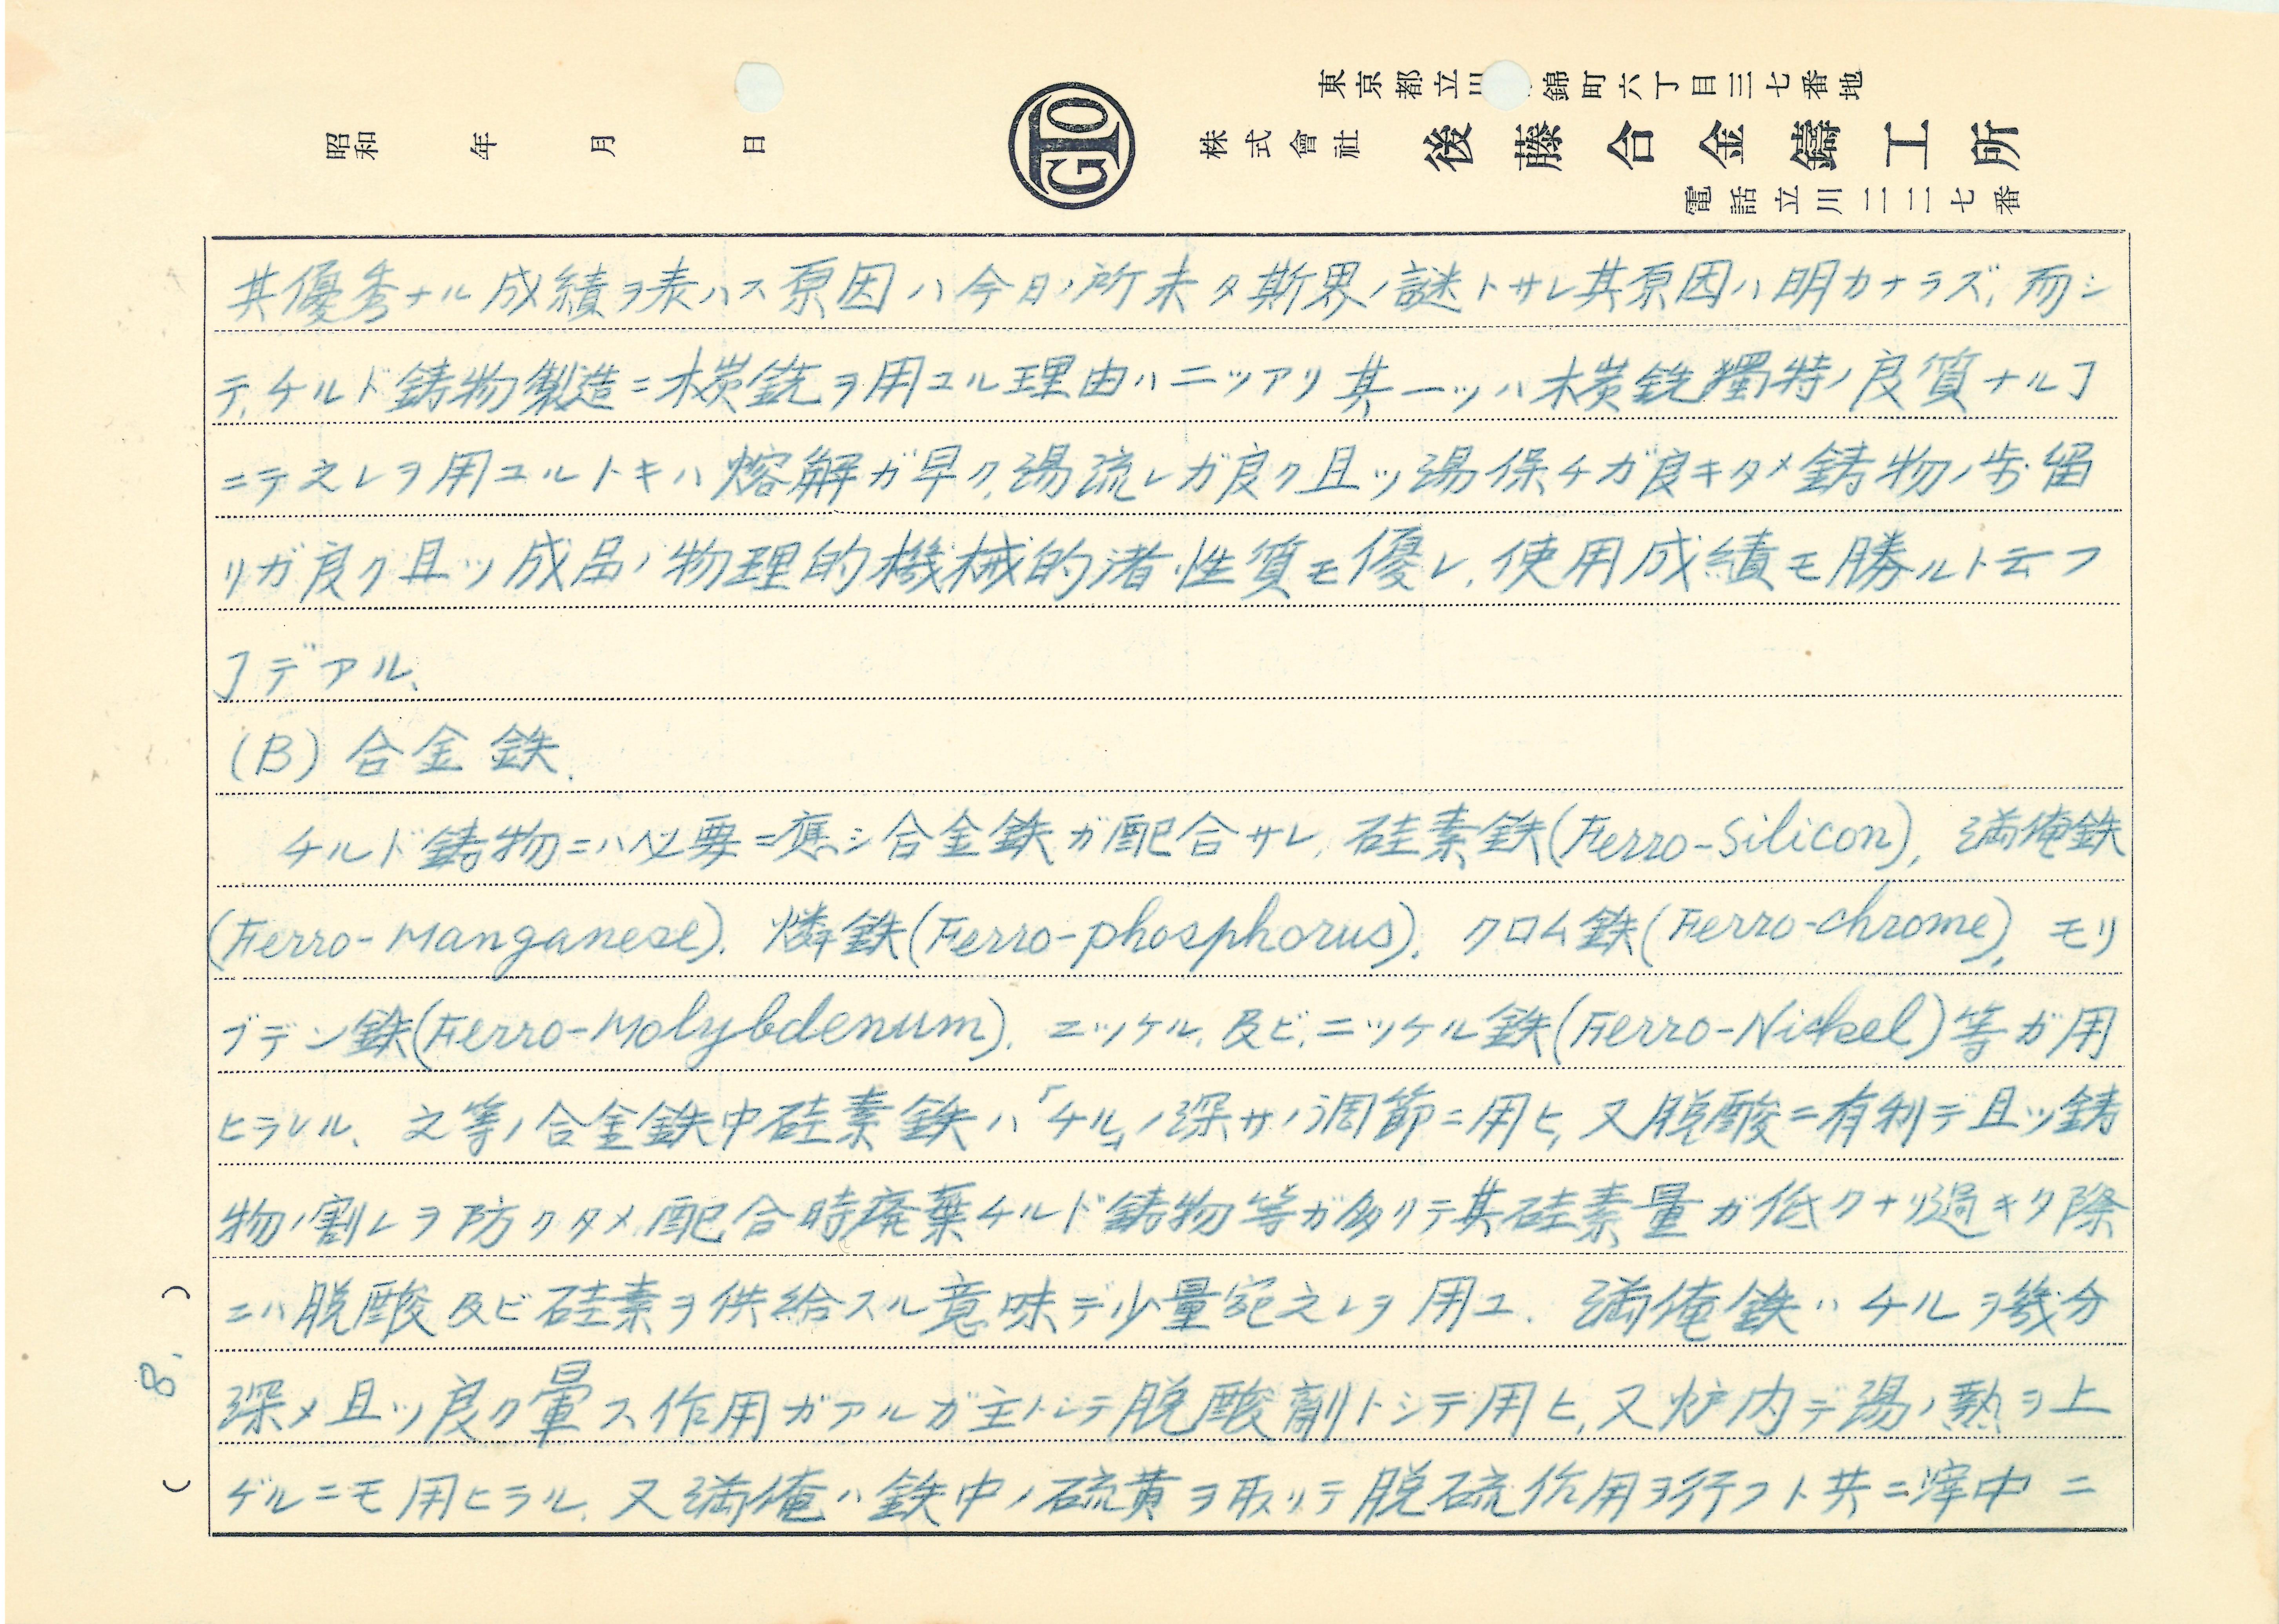 東京都立川 錦町六丁目三七番地
昭和 年 月 日
GTO
株式會社 後藤合金鑄工所
電話立川二二七番
共優秀ナル成績ヲ表ハス原因ハ今日ノ所未タ斯界ノ謎トサレ其原因ハ明カナラズ、而シ
テ、チルド鋳物製造ニ木炭銑ヲ用ユル理由ハ二ツアリ其一ツハ木炭銑獨特ノ良質ナルヿ
ニテ之レヲ用ユルトキハ熔解ガ早ク、湯流レガ良ク且ツ湯保チガ良キタメ鋳物ノ歩留
リガ良ク且ツ成品ノ物理的機械的諸性質モ優レ、使用成績モ勝ルト云フ
ヿデアル、
(B) 合金鉄.
チルド鋳物ニハ必要ニ應シ合金鉄ガ配合サレ、硅素鉄(Ferro-Silicon), 満俺鉄
(Ferro-Manganese). 燐鉄(Ferro-phosphorus). クロム鉄(Ferro-chrome), モリ
ブデン鉄(Ferro-Molybdenum). ニッケル、及ビ、ニッケル鉄(Ferro-Nickel)等ガ用
ヒラレル、之等ノ合金鉄中硅素鉄ハ「チル」ノ深サノ調節ニ用ヒ、又脱酸ニ有利デ且ツ鋳
物ノ割レヲ防クタメ配合時廃棄チルド鋳物等ガ多リテ其硅素量ガ低クナリ過キタ際
ニハ脱酸及ビ硅素ヲ供給スル意味デ少量宛之レヲ用ユ. 満俺鉄ハチルヲ幾分
深メ且ツ良ク暈ス作用ガアルガ主トシテ脱酸剤トシテ用ヒ、又炉内デ湯ノ熱ヲ上
ゲルニモ用ヒラル、又満俺ハ鉄中ノ硫黄ヲ取リテ脱硫作用ヲ行フト共ニ滓中ニ
( 8. )